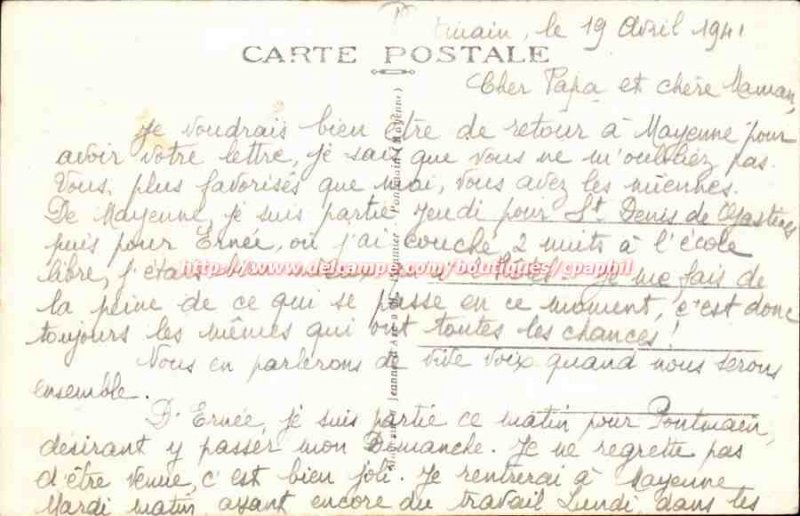 tmain, le 19 Avril 1941
CARTE POSTALE
Cher Papa et chère Maman,
Je voudrais bien être de retour à Mayenne pour
avoir votre lettre, je sais que vous ne m'oubliez pas.
Vous, plus favorisés que moi, vous avez les miennes.
De Mayenne, je suis partie Jeudi pour St Denis de Gastines
puis pour Ernée, où j'ai couché 2 nuits à l'école
libre, j'étais Je me fais de
http://www.delcampe.com/boutiques/cpaphil
la peine de ce qui se passe en ce moment, c'est donc
toujours les mêmes qui ont toutes les chances !
Nous en parlerons de vive voix quand nous serons
ensemble.
D'Ernée, je suis partie ce matin pour Pontmain,
désirant y passer mon Dimanche. Je ne regrette pas
d'être venue, c'est bien joli. Je rentrerai à Mayenne
Mardi matin ayant encore du travail Lundi dans les
Jeanne d'Arc Pontmain (Mayenne)